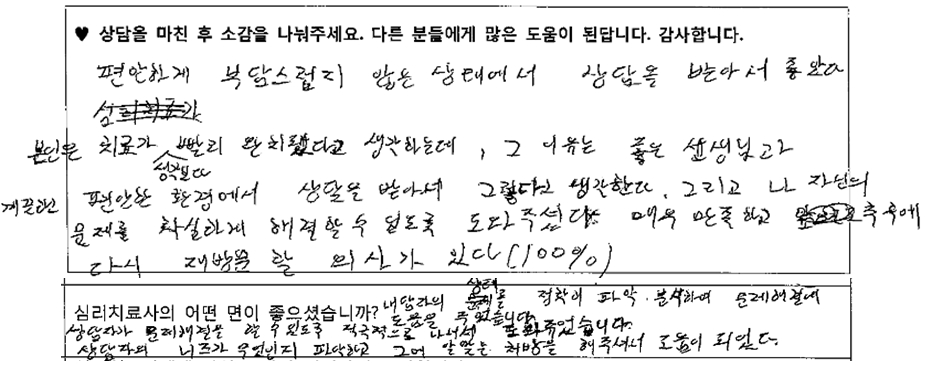 ♥ 상담을 마친 후 소감을 나눠주세요. 다른 분들에게 많은 도움이 된답니다. 감사합니다.
편안하게 부담스럽지 않은 상태에서 상담을 받아서 좋았다
본인은 치료가 생각보다 빨리 완치됐다고 생각하는데, 그 이유는 좋은 선생님과
편안한 환경에서 상담을 받아서 그렇다고 생각한다. 그리고 나 자신의
문제를 확실하게 해결할 수 있도록 도와주셨다. 매우 만족하고 추후에
다시 재방문 할 의사가 있다(100%)
심리치료사의 어떤 면이 좋으셨습니까? 내담자의 상태를 정확히 파악·분석하여 문제해결에
도움을 주었습니다.
상담자가 문제해결을 할 수 있도록 적극적으로 나서서 도와주었습니다.
상담자의 니즈가 무엇인지 파악하고 그에 알맞는 처방을 해주셔서 도움이 되었다.